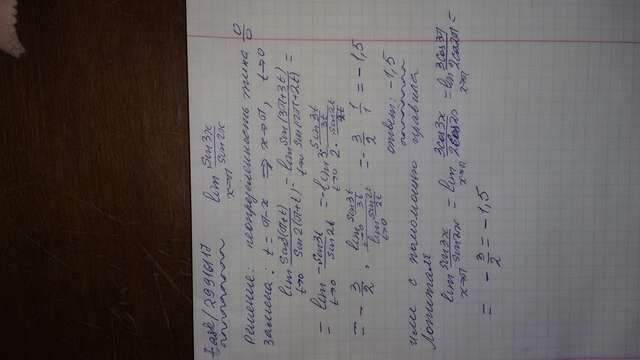 task/29916117 lim x→π sin3x/sin2x
Решение: неопределенность типа 0/0
замена: t = π-x ⇒ x→π, t→0
lim t→0 sin3(π+t)/sin2(π+t) = lim t→0 sin(3π+3t)/sin(2π+2t) =
= lim t→0 -sin3t/sin2t = -lim t→0 3·sin3t/3t / 2·sin2t/2t
= -3/2 · lim t→0 sin3t/3t / lim t→0 sin2t/2t = -3/2 · 1/1 = -1,5
ответ: -1,5
или с помощью правила
Лопиталя
lim x→π sin3x/sin2x = lim x→π 3cos3x/2cos2x = lim x→π 3cos3π/2cos2π =
= -3/2 = -1,5